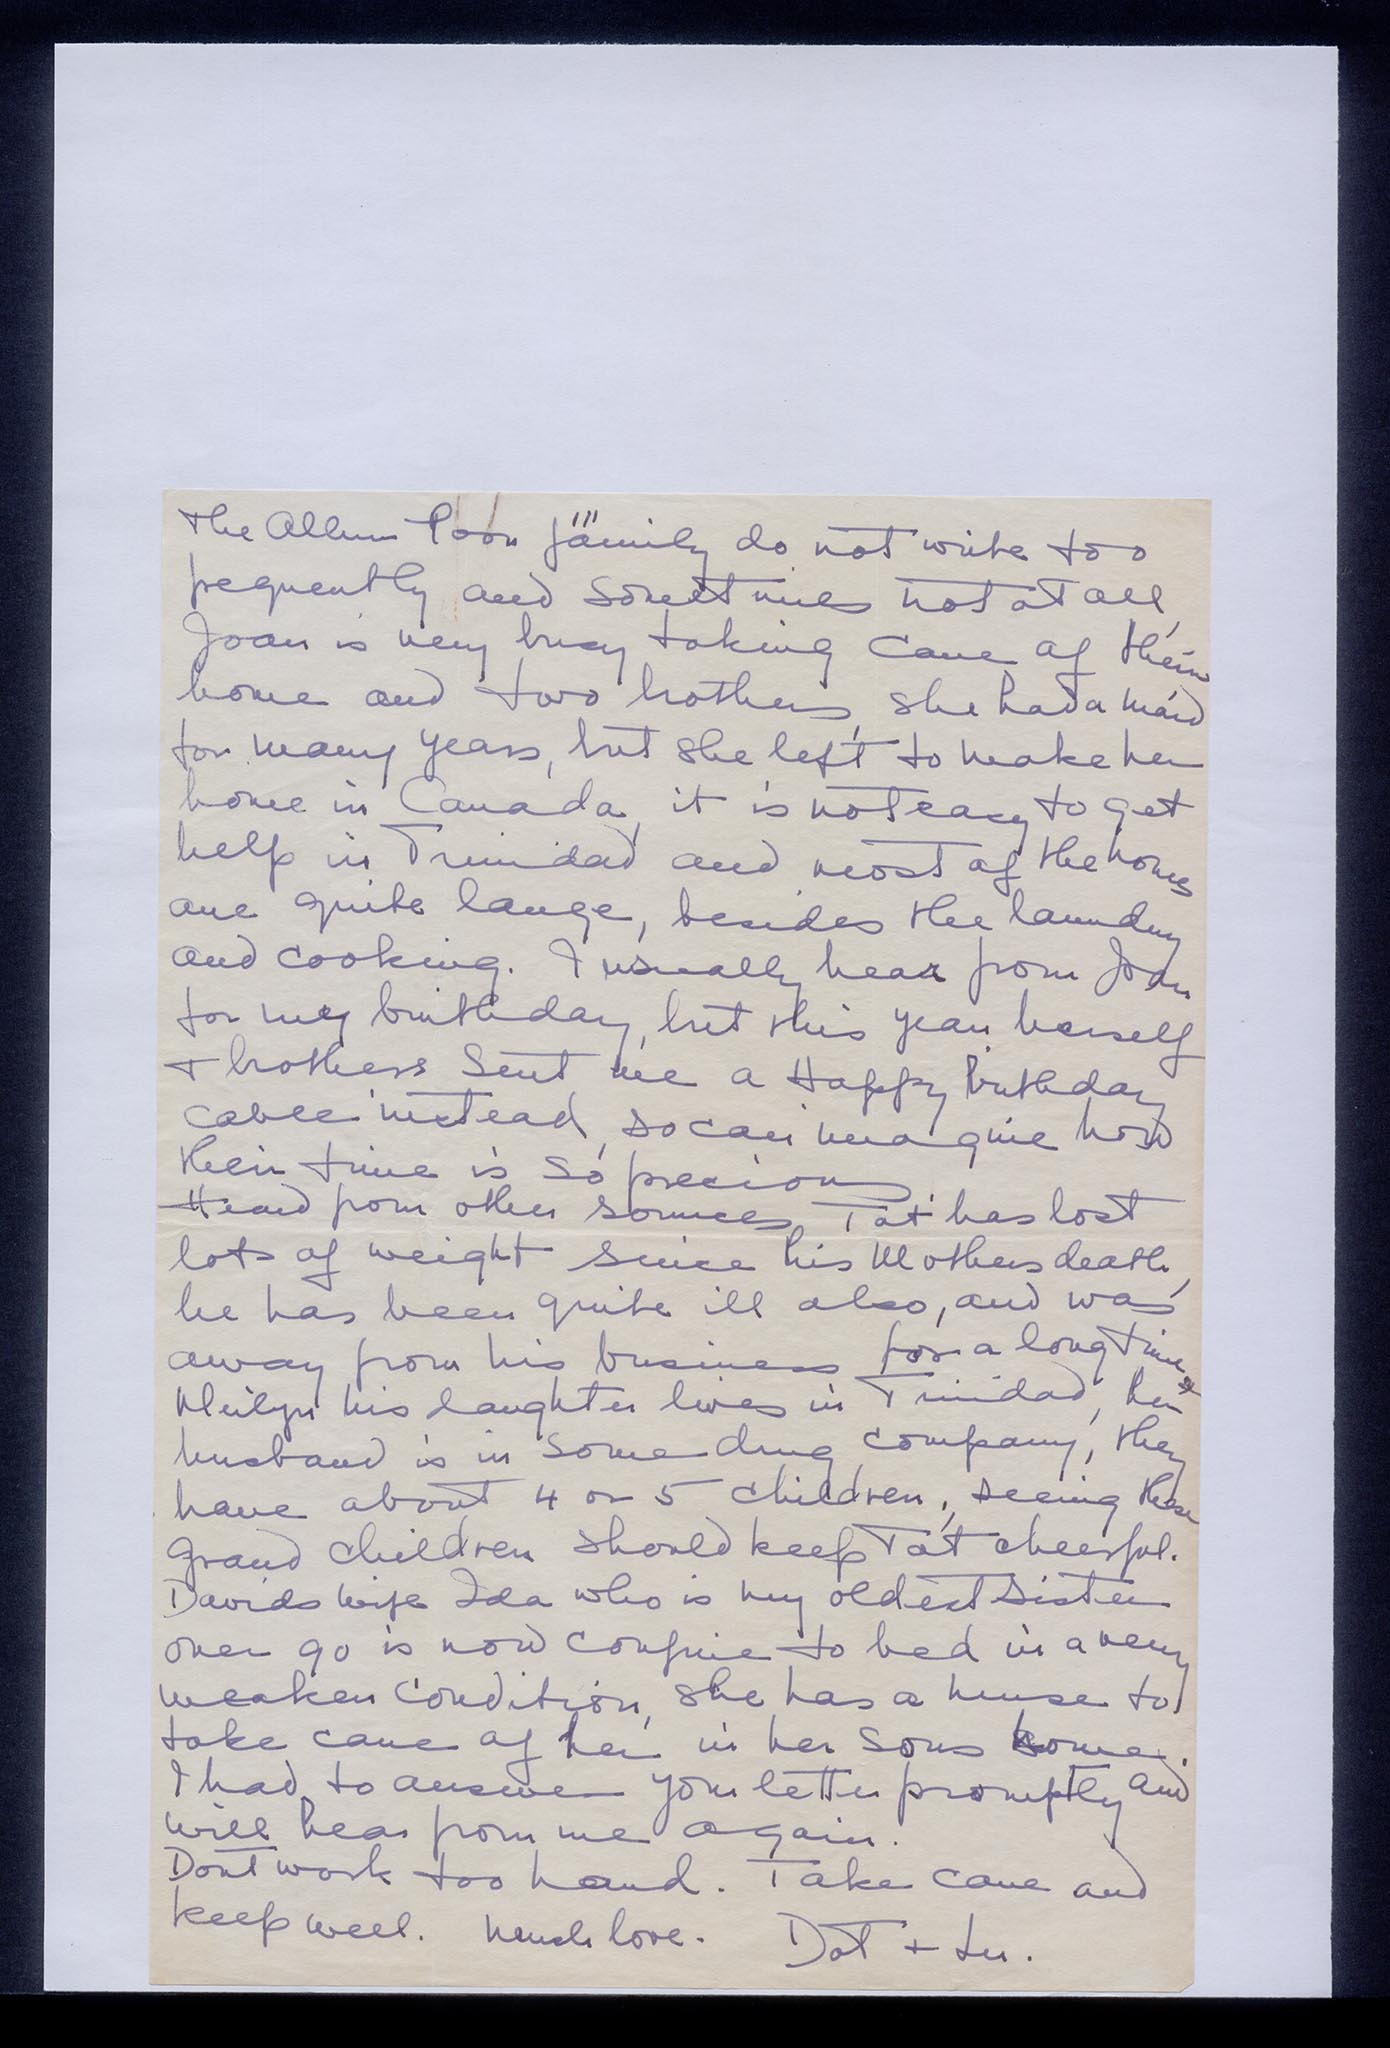 the Allum Poon family do not write too
frequently and sometimes not at all,
Joan is very busy taking care of their
home and two brothers, she had a maid
for many years, but she left to make her
home in Canada, it is not easy to get
help in Trinidad and most of the homes
are quite large, besides the laundry
and cooking. I usually hear from Joan
for my birthday, but this year herself
+ brothers sent me a Happy birthday
cable instead, so can imagine how
their time is so precious
Heard from other sources, Tat has lost
lots of weight since his Mothers death,
he has been quite ill also, and was
away from his business for a long time.
his daughter lives in Trinidad, her
husband is in some drug company, they
have about 4 or 5 children, seeing these
grand children should keep Tat cheerful.
Davids wife Ida who is my oldest sister
over 90 is now confine to bed in a very
weaken condition, she has a nurse to
take care of her in her sons home.
I had to answer your letter promptly and
will hear from me again.
Dont work too hard. Take care and
keep well. Much love. Dot +